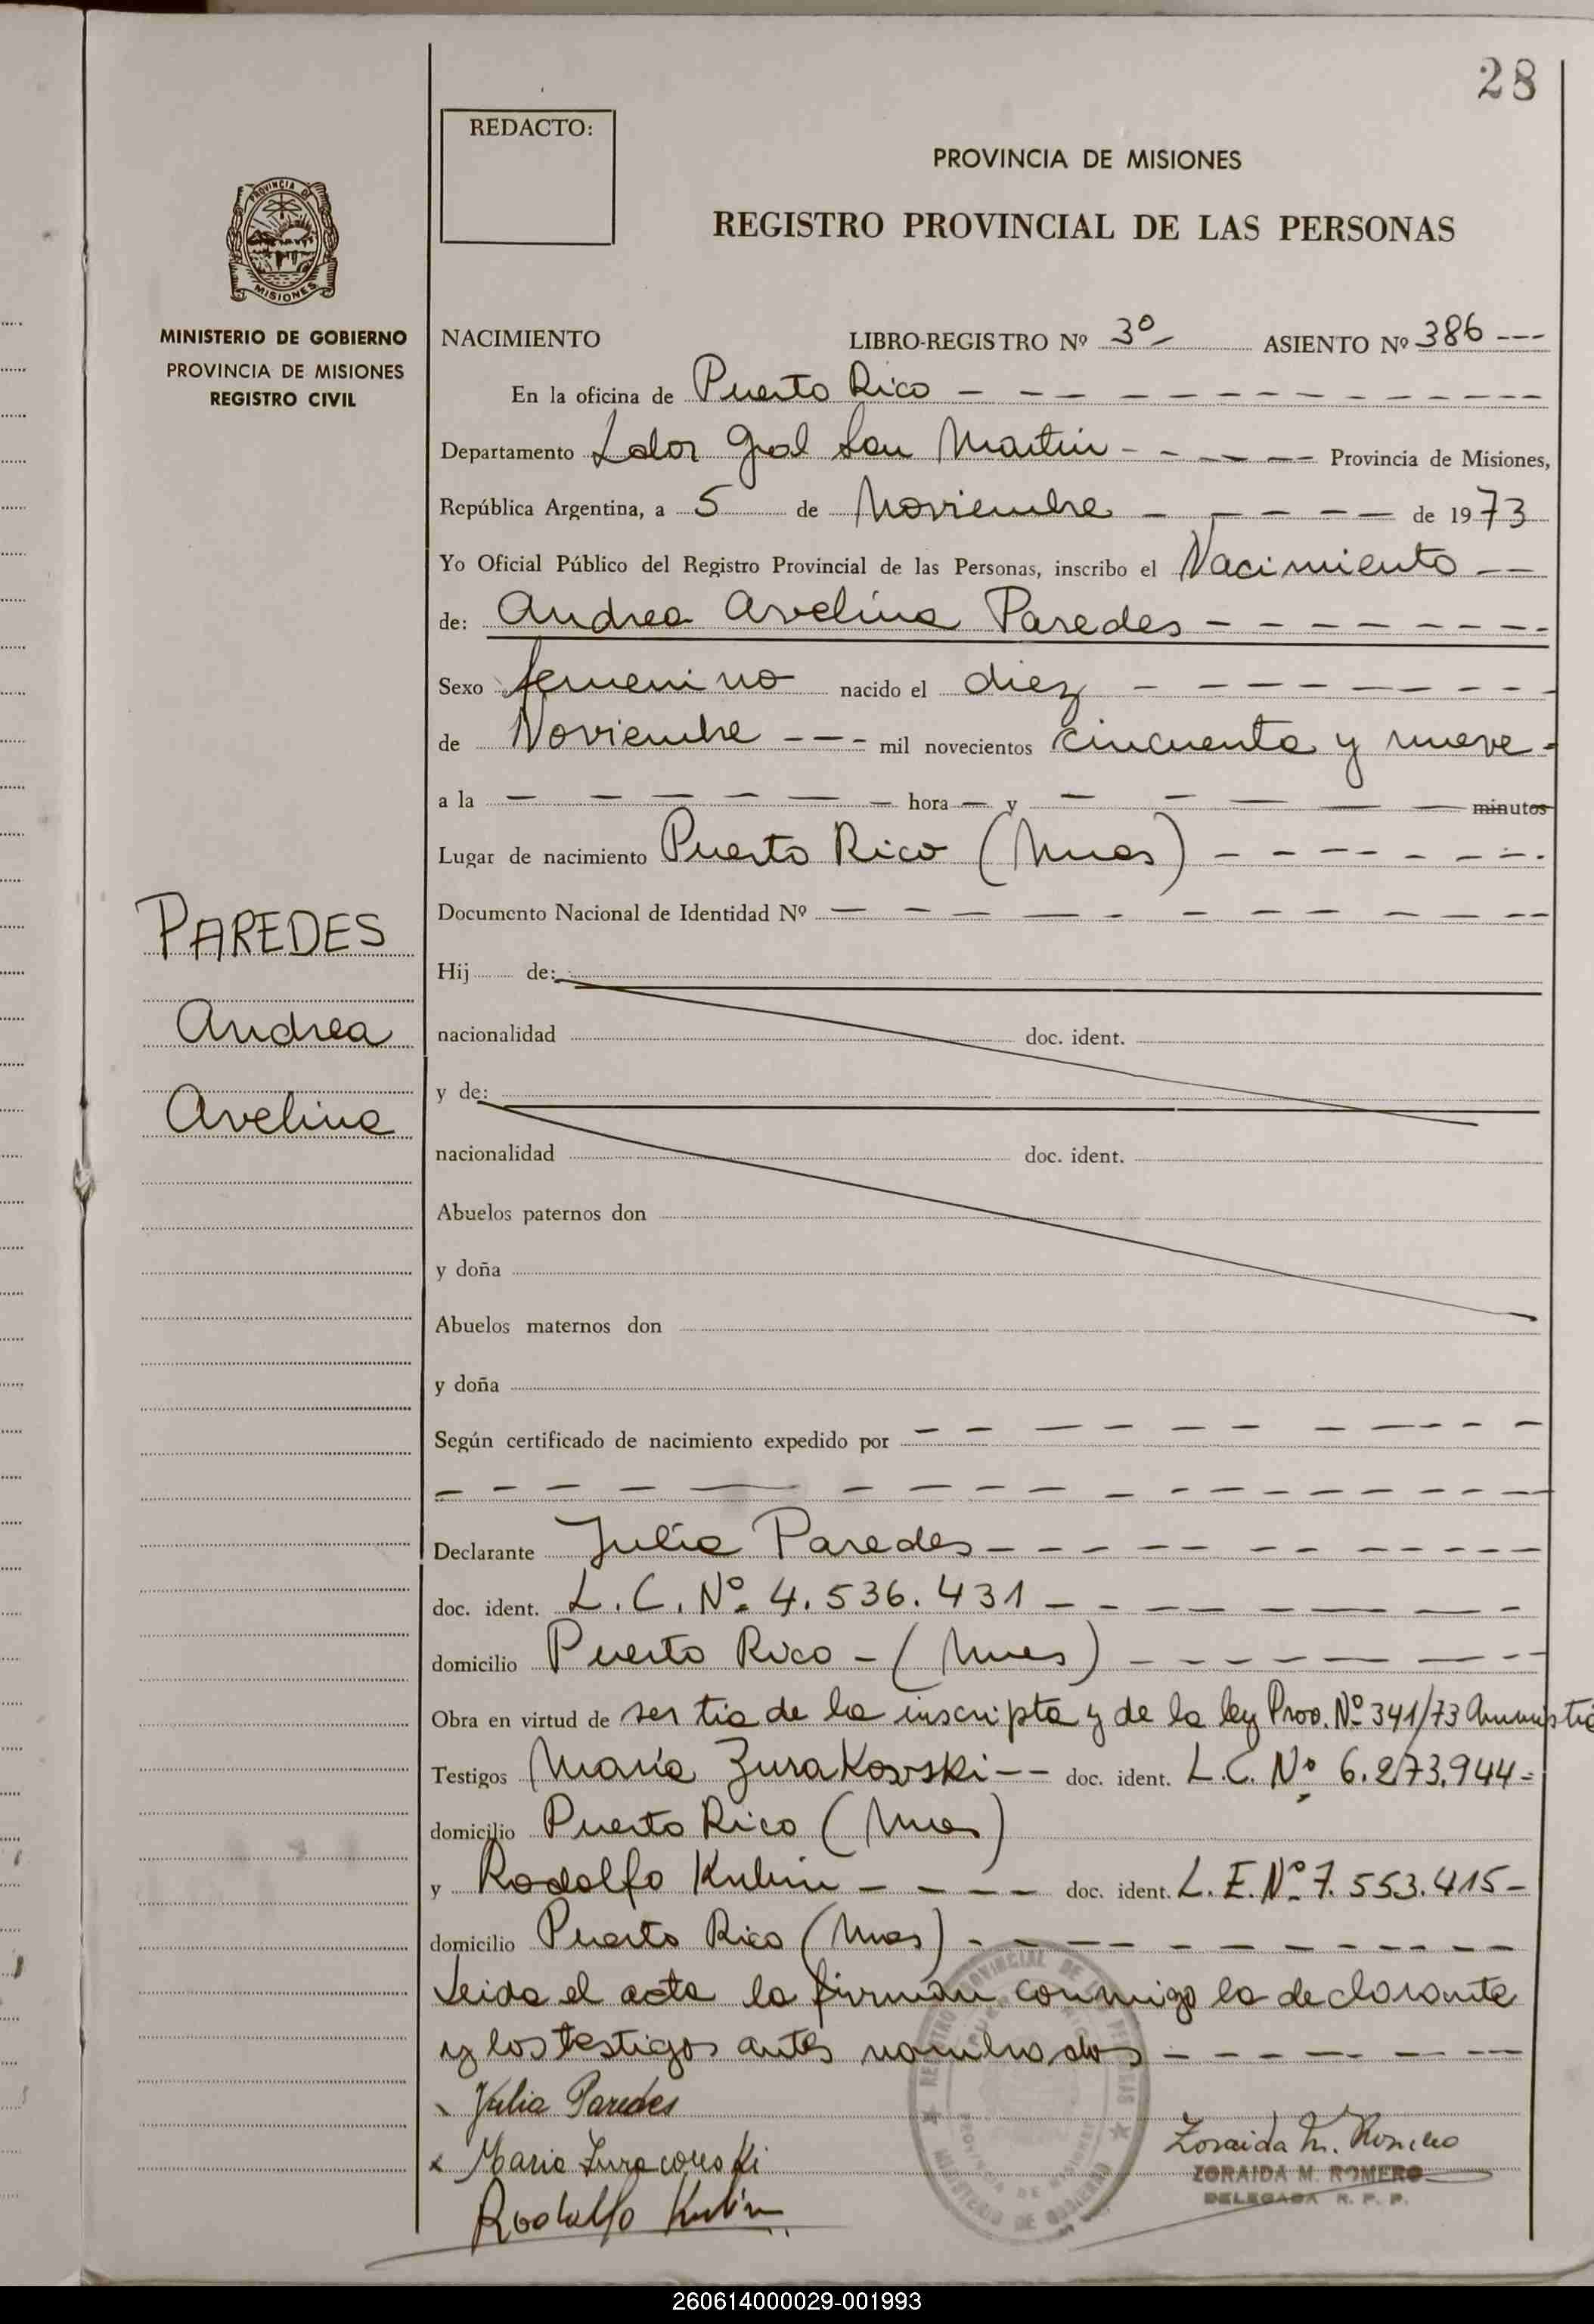 28
REDACTO:
PROVINCIA DE MISIONES
REGISTRO PROVINCIAL DE LAS PERSONAS
PROVINCIA DE
MISIONES
MINISTERIO DE GOBIERNO
PROVINCIA DE MISIONES
REGISTRO CIVIL
NACIMIENTO LIBRO-REGISTRO Nº 3º- ASIENTO Nº 386 ---
En la oficina de Puerto Rico - - - - - - - - - - - -
Departamento Ldor Gral San Martin - - - - - Provincia de Misiones,
República Argentina, a 5 de Noviembre - - - - - de 1973
Yo Oficial Público del Registro Provincial de las Personas, inscribo el Nacimiento --
de: Andrea Avelina Paredes - - - - - - - -
Sexo femenino nacido el diez - - - - - - - - -
de Noviembre --- mil novecientos cincuenta y nueve -
a la - - - - - - hora - y - - - - - minutos
Lugar de nacimiento Puerto Rico (Mnes) - - - - - - - -
Documento Nacional de Identidad Nº - - - - - - - - - - -
PAREDES
Andrea
Avelina
Hij de:
nacionalidad doc. ident.
y de:
nacionalidad doc. ident.
Abuelos paternos don
y doña
Abuelos maternos don
y doña
Según certificado de nacimiento expedido por - - - - - - - - - -
- - - - - - - - - - - - - - - -
Declarante Julia Paredes - - - - - - - - - - - -
doc. ident. L.C. Nº 4.536.431 - - - - - - - -
domicilio Puerto Rico - (Mnes) - - - - - - - -
Obra en virtud de ser tia de la inscripta y de la ley Prov. Nº 341/73 Amnistia
Testigos Maria Zurakovski -- doc. ident. L.C. Nº 6.273.944 =
domicilio Puerto Rico (Mnes)
y Rodolfo Kubin - - - - doc. ident. L.E. Nº 7.553.415 -
domicilio Puerto Rico (Mnes) - - - - - - - - - -
Leida el acta la firman conmigo la declarante
y los testigos antes nombrados - - - - - - -
Julia Paredes
Maria Zuracouski
Rodolfo Kubin
REGISTRO PROVINCIAL DE LAS PERSONAS
PROVINCIA DE MISIONES
MINISTERIO DE GOBIERNO
Zoraida M. Romero
ZORAIDA M. ROMERO
DELEGADA R. P. P.
260614000029-001993